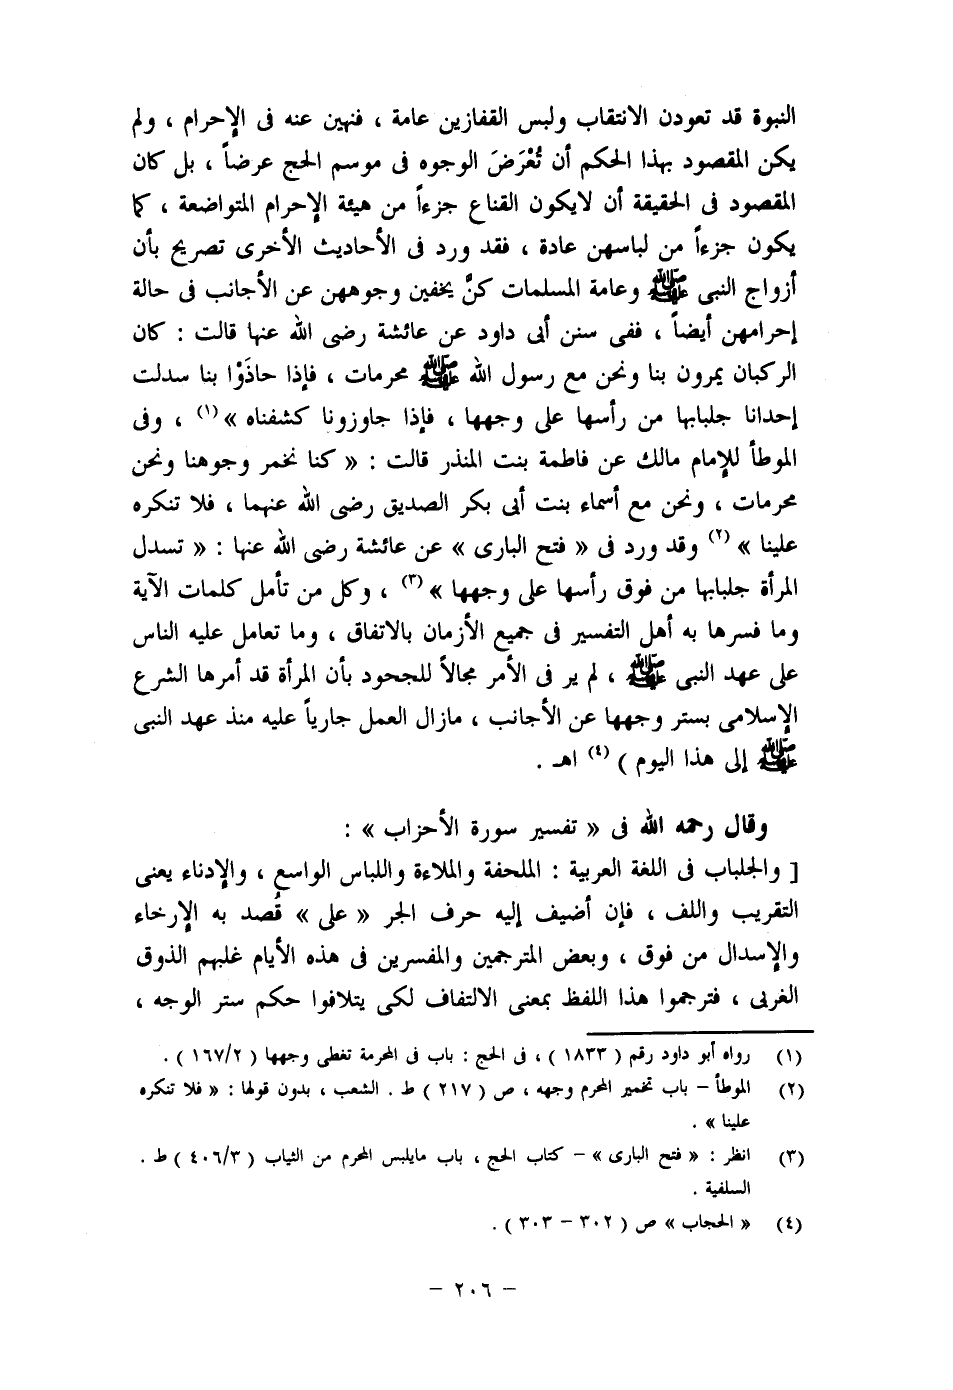 النبوة قد تعودن الانتقاب ولبس القفازين عامة ، فنهين عنه فى الإحرام ، ولم
يكن المقصود بهذا الحكم أن تُعْرَضَ الوجوه فى موسم الحج عرضاً ، بل كان
المقصود فى الحقيقة أن لايكون القناع جزءاً من هيئة الإحرام المتواضعة ، كما
يكون جزءاً من لباسهن عادة ، فقد ورد فى الأحاديث الأخرى تصريح بأن
أزواج النبى ﷺ وعامة المسلمات كنَّ يخفين وجوههن عن الأجانب فى حالة
إحرامهن أيضاً ، ففى سنن أبى داود عن عائشة رضى الله عنها قالت : كان
الركبان يمرون بنا ونحن مع رسول الله ﷺ محرمات ، فإذا حاذَوْا بنا سدلت
إحدانا جلبابها من رأسها على وجهها ، فإذا جاوزونا كشفناه » (١) ، وفى
الموطأ للإمام مالك عن فاطمة بنت المنذر قالت : « كنا نخمر وجوهنا ونحن
محرمات ، ونحن مع أسماء بنت أبى بكر الصديق رضى الله عنهما ، فلا تنكره
علينا » (٢) وقد ورد فى « فتح البارى » عن عائشة رضى الله عنها : « تسدل
المرأة جلبابها من فوق رأسها على وجهها » (٣) ، وكل من تأمل كلمات الآية
وما فسرها به أهل التفسير فى جميع الأزمان بالاتفاق ، وما تعامل عليه الناس
على عهد النبى ﷺ ، لم ير فى الأمر مجالاً للجحود بأن المرأة قد أمرها الشرع
الإسلامى بستر وجهها عن الأجانب ، مازال العمل جارياً عليه منذ عهد النبى
ﷺ إلى هذا اليوم ) (٤) اهـ .
وقال رحمه الله فى « تفسير سورة الأحزاب » :
[ والجلباب فى اللغة العربية : الملحفة والملاءة واللباس الواسع ، والإدناء يعنى
التقريب واللف ، فإن أضيف إليه حرف الجر « على » قُصد به الإرخاء
والإسدال من فوق ، وبعض المترجمين والمفسرين فى هذه الأيام غلبهم الذوق
الغربى ، فترجموا هذا اللفظ بمعنى الالتفاف لكى يتلافوا حكم ستر الوجه ،
(١) رواه أبو داود رقم ( ١٨٣٣ ) ، فى الحج : باب فى المحرمة تغطى وجهها ( ١٦٧/٢ ) .
(٢) الموطأ – باب تخمير المحرم وجهه ، ص ( ٢١٧ ) ط . الشعب ، بدون قولها : « فلا تنكره
علينا » .
(٣) انظر : « فتح البارى » – كتاب الحج ، باب مايلبس المحرم من الثياب ( ٤٠٦/٣ ) ط .
السلفية .
(٤) « الحجاب » ص ( ٣٠٢ – ٣٠٣ ) .
– ٢٠٦ –